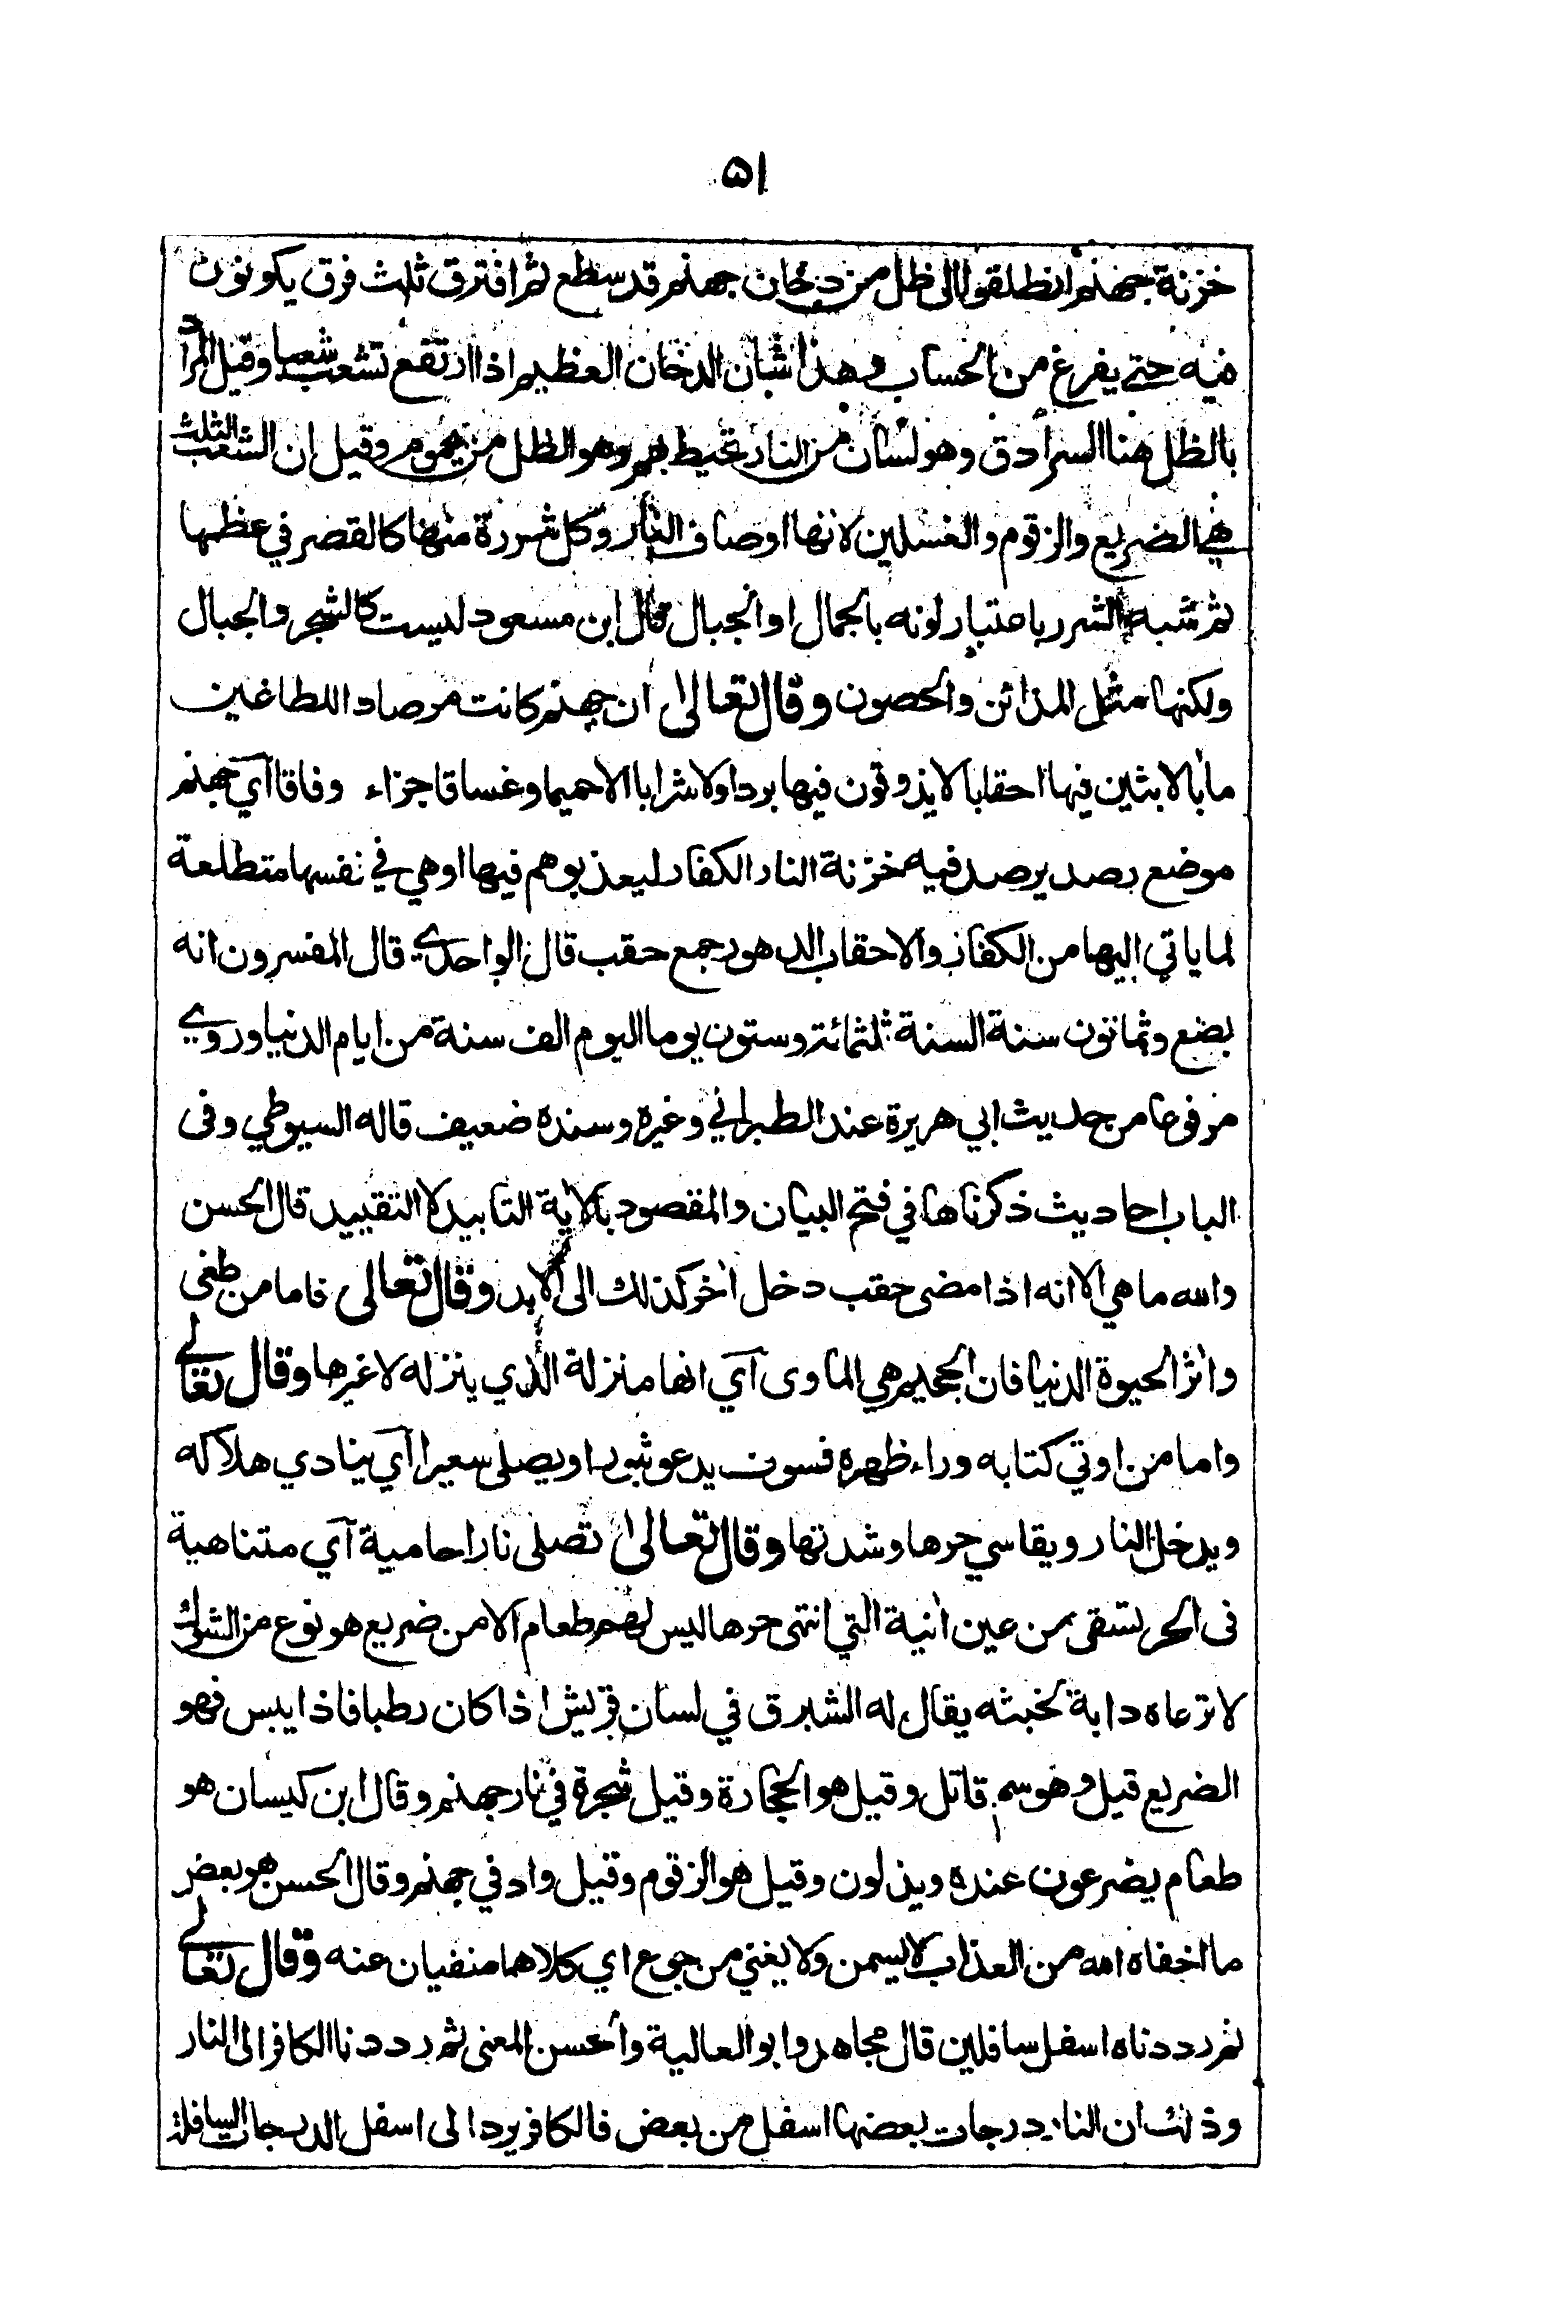 ۵۱
خزنة جهنم انطلقوا الى ظل من دخان جهنم قد سطع ثم افترق ثلث فرق يكونون
فيه حتى يفرغ من الحساب وهذا شان الدخان العظيم اذا ارتفع تشعب شعبا وقيل المراد
بالظل هنا السرادق وهو لسان من النار تحيط بهم وهو الظل من يحموم وقيل ان الشعب الثلث
هي الضريع والزقوم والغسلين لانها اوصاف النار وكل شررة منها كالقصر في عظمها
ثم شبه الشرر باعتبار لونه بالجمال او الجبال قال ابن مسعود ليست كالشجر والجبال
ولكنها مثل المدائن والحصون وقال تعالى ان جهنم كانت مرصادا للطاغين
مابا لابثين فيها احقابا لا يذوقون فيها بردا ولا شرابا الا حميما وغساقا جزاء وفاقا آي جهنم
موضع رصد يرصد فيه خزنة النار الكفار ليعذبوهم فيها او هي في نفسها متطلعة
لما ياتي اليها من الكفار والاحقاب الدهور جمع حقب قال الواحدي قال المفسرون انه
بضع وثمانون سنة السنة ثلثمائة وستون يوما اليوم الف سنة من ايام الدنيا وروي
مرفوعا من حديث ابي هريرة عند الطبراني وغيره وسنده ضعيف قاله السيوطي وفى
الباب احاديث ذكرناها في فتح البيان والمقصود بالاية التابيد لا التقييد قال الحسن
والله ما هي الا انه اذا مضى حقب دخل اٰخر كذلك الى الابد وقال تعالى فاما من طغى
واٰثر الحيوة الدنيا فان الجحيم هي الماوى آي انها منزلة الذي ينزله لا غيرها وقال تعالى
واما من اوتي كتابه وراء ظهره فسوف يدعو ثبورا ويصلى سعيرا آي ينادي هلاكه
ويدخل النار ويقاسي حرها وشدتها وقال تعالى تصلى نارا حامية آي متناهية
فى الحر تسقى من عين اٰنية التي انتهى حرها ليس لهم طعام الا من ضريع هو نوع من الشوك
لا ترعاه دابة لخبثه يقال له الشبرق في لسان قريش اذا كان رطبا فاذا يبس فهو
الضريع قيل وهو سم قاتل وقيل هو الحجارة وقيل شجرة في نار جهنم وقال ابن كيسان هو
طعام يضرعون عنده ويذلون وقيل هو الزقوم وقيل واد في جهنم وقال الحسن هو بعض
ما اخفاه الله من العذاب لا يسمن ولا يغني من جوع اي كلاهما منفيان عنه وقال تعالى
ثم رددناه اسفل سافلين قال مجاهد وابو العالية والحسن المعنى ثم رددنا الكافر الى النار
وذلك ان النار درجات بعضها اسفل من بعض فالكافر يرد الى اسفل الدرجات السافلة